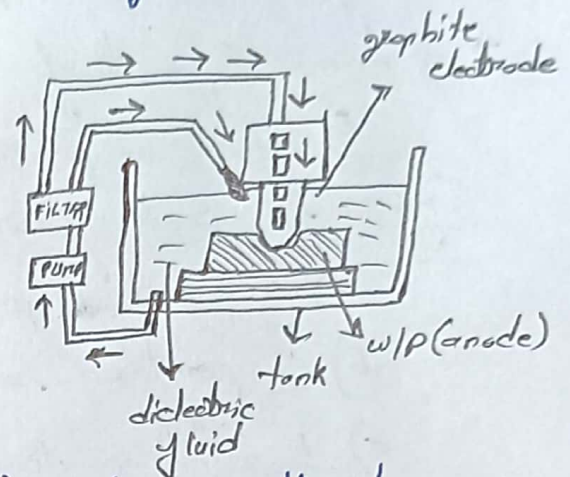 graphite
electrode
FILTER
PUMP
w/p (anode)
tank
dielectric
fluid